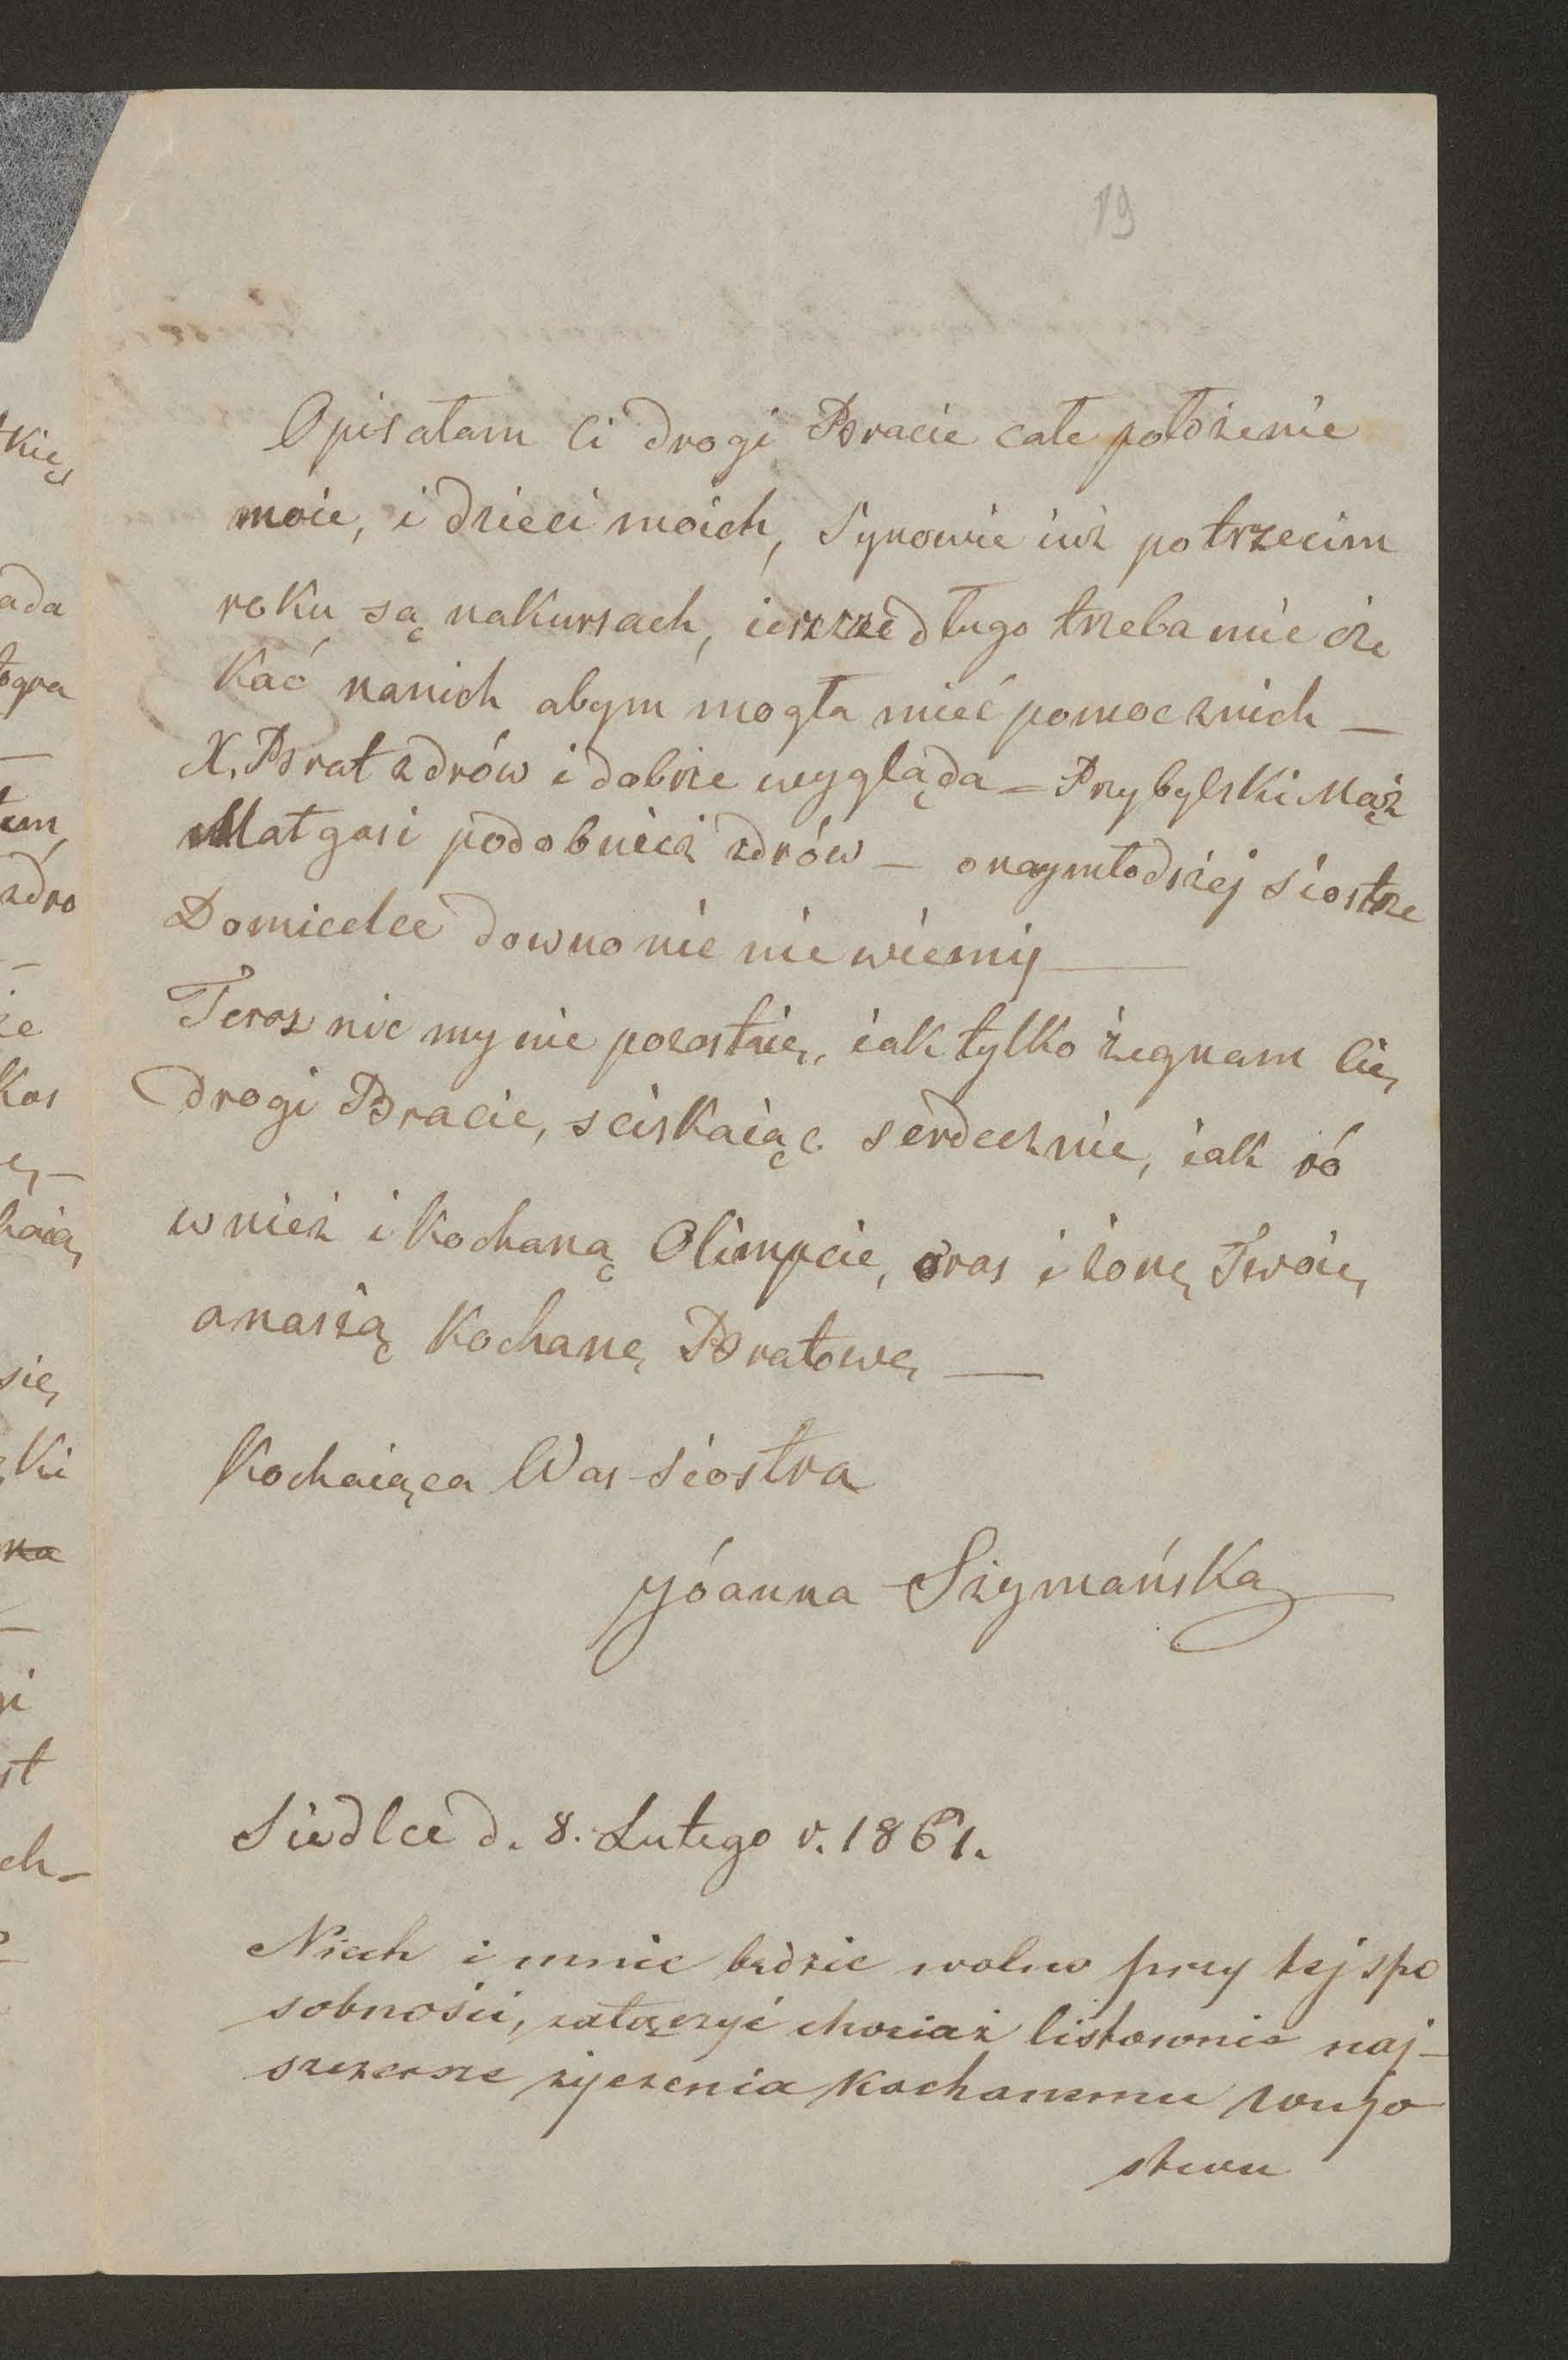 19
Opisałam Ci drogi Bracie całe położenie
moie, i dzieci moich, Synowie iuż potrzecim
roku są nakursach, ieszcze długo trzeba mie cze
kać nanich abym mogła mieć pomoc znich —
X. Brat zdrów i dobrze wygląda — Przybylski Mąż
Małgosi podobnież zdrów — onaymłodszej siostrze
Domicelce downo nic nie wiemy —
Teroz nic my nie pozostaie, iak tylko żegnam Cię
drogi Bracie, sciskaiąc serdecznie, iak ró
wnież i kochaną Olimpcie, oras i żonę Twoię
anaszą kochanę Bratowę —
Kochaiąca Was Siostra
Jóanna Szymańska
Siedlce d. 8. Lutego r. 1861.
Niech i mnie będzie wolno przy tej spo
sobności, załączyć chociaż listownie naj-
szczersze życzenia kochanemu wujo
stwu
kię
ada
zdro
kos
się
ki
st
ch-